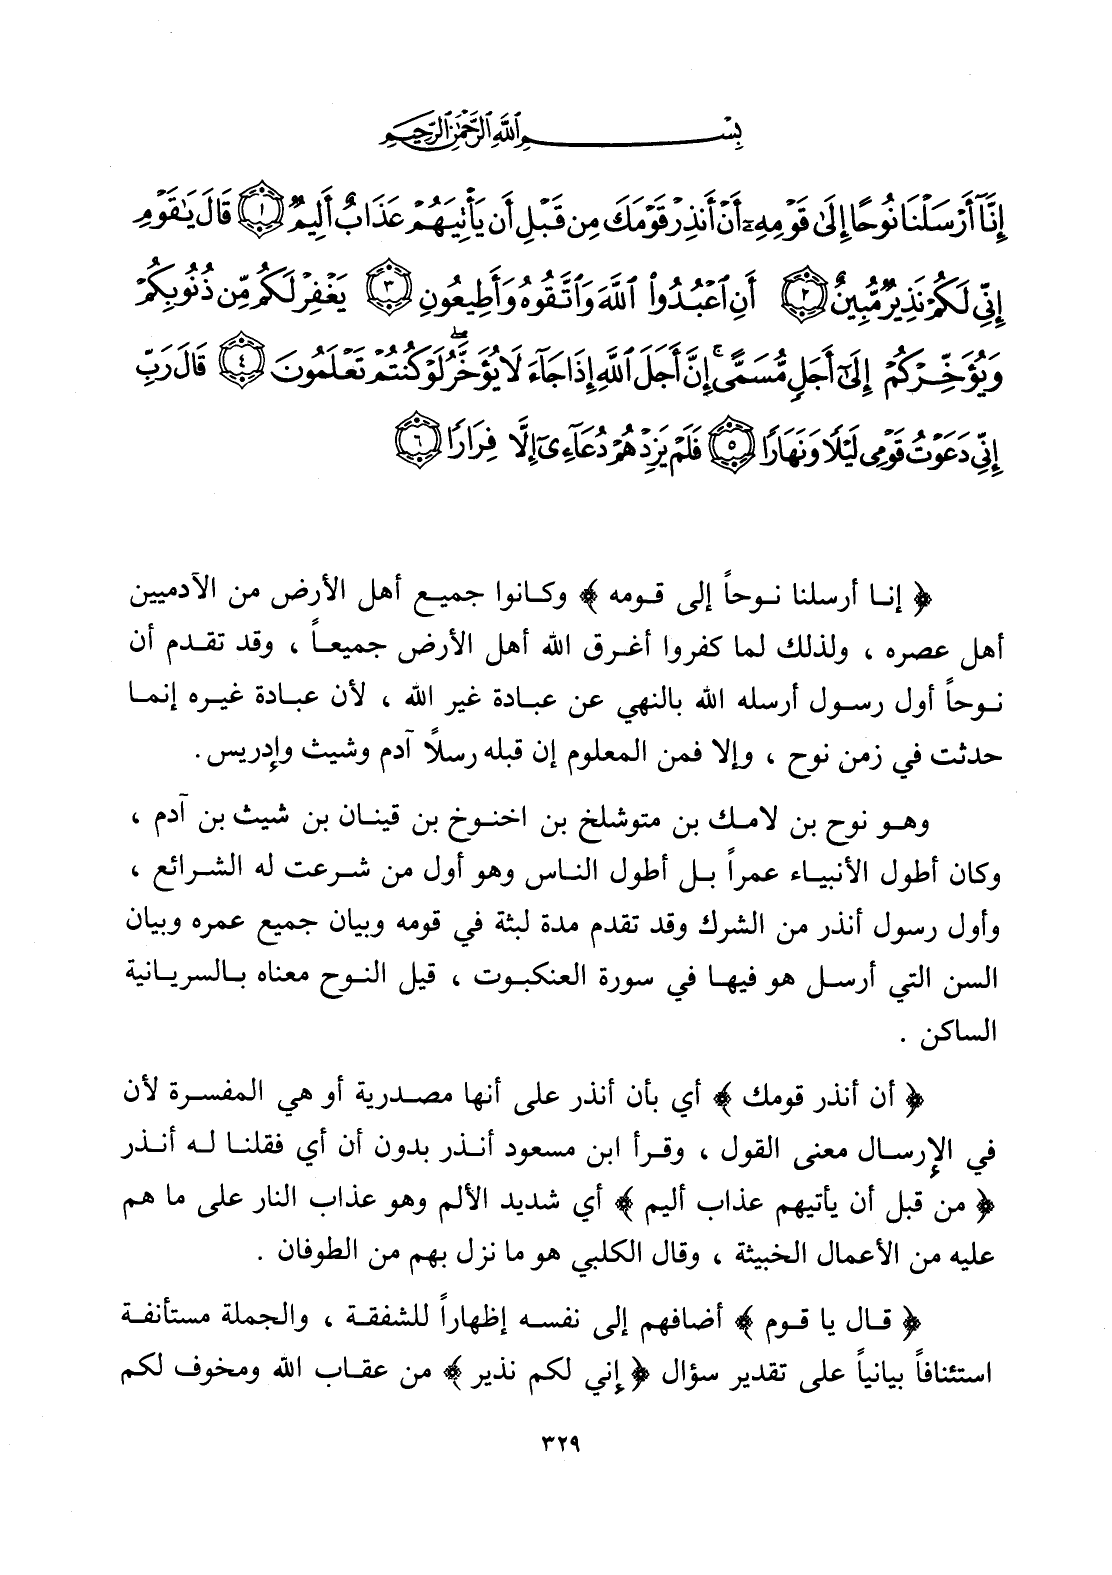 بِسْمِ ٱللَّهِ ٱلرَّحْمَٰنِ ٱلرَّحِيمِ
إِنَّآ أَرْسَلْنَا نُوحًا إِلَىٰ قَوْمِهِۦٓ أَنْ أَنذِرْ قَوْمَكَ مِن قَبْلِ أَن يَأْتِيَهُمْ عَذَابٌ أَلِيمٌ ١ قَالَ يَٰقَوْمِ
إِنِّى لَكُمْ نَذِيرٌ مُّبِينٌ ٢ أَنِ ٱعْبُدُوا۟ ٱللَّهَ وَٱتَّقُوهُ وَأَطِيعُونِ ٣ يَغْفِرْ لَكُم مِّن ذُنُوبِكُمْ
وَيُؤَخِّرْكُمْ إِلَىٰٓ أَجَلٍ مُّسَمًّى ۚ إِنَّ أَجَلَ ٱللَّهِ إِذَا جَآءَ لَا يُؤَخَّرُ ۖ لَوْ كُنتُمْ تَعْلَمُونَ ٤ قَالَ رَبِّ
إِنِّى دَعَوْتُ قَوْمِى لَيْلًا وَنَهَارًا ٥ فَلَمْ يَزِدْهُمْ دُعَآءِىٓ إِلَّا فِرَارًا ٦
﴿ إنا أرسلنا نوحاً إلى قومه ﴾ وكانوا جميع أهل الأرض من الآدميين
أهل عصره ، ولذلك لما كفروا أغرق الله أهل الأرض جميعاً ، وقد تقدم أن
نوحاً أول رسول أرسله الله بالنهي عن عبادة غير الله ، لأن عبادة غيره إنما
حدثت في زمن نوح ، وإلا فمن المعلوم إن قبله رسلاً آدم وشيث وإدريس .
وهو نوح بن لامك بن متوشلخ بن اخنوخ بن قينان بن شيث بن آدم ،
وكان أطول الأنبياء عمراً بل أطول الناس وهو أول من شرعت له الشرائع ،
وأول رسول أنذر من الشرك وقد تقدم مدة لبثة في قومه وبيان جميع عمره وبيان
السن التي أرسل هو فيها في سورة العنكبوت ، قيل النوح معناه بالسريانية
الساكن .
﴿ أن أنذر قومك ﴾ أي بأن أنذر على أنها مصدرية أو هي المفسرة لأن
في الإرسال معنى القول ، وقرأ ابن مسعود أنذر بدون أن أي فقلنا له أنذر
﴿ من قبل أن يأتيهم عذاب أليم ﴾ أي شديد الألم وهو عذاب النار على ما هم
عليه من الأعمال الخبيثة ، وقال الكلبي هو ما نزل بهم من الطوفان .
﴿ قال يا قوم ﴾ أضافهم إلى نفسه إظهاراً للشفقة ، والجملة مستأنفة
استئنافاً بيانياً على تقدير سؤال ﴿ إني لكم نذير ﴾ من عقاب الله ومخوف لكم
٣٢٩